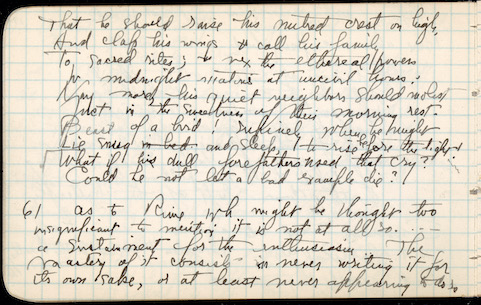 That he should raise his mitred crest on high,
And clap his wings & call his family
To sacred rites; & vex the ethereal powers
With midnight matins at uncivil hours;
Nay more, his quiet neighbors should molest
Just in the sweetness of their morning rest.
Beast of a bird! supinely when he might
Lie snug in bed and sleep, to rise before the light
What if his dull forefathers used that cry?
Could he not let a bad example die?
6) as to Rime, wh might be thought two
insignificant to mention it is not at all so. . . .
a sustainment for the enthusiasm. The
mastery of it consists in never writing it for
its own sake, or at least never appearing to do so